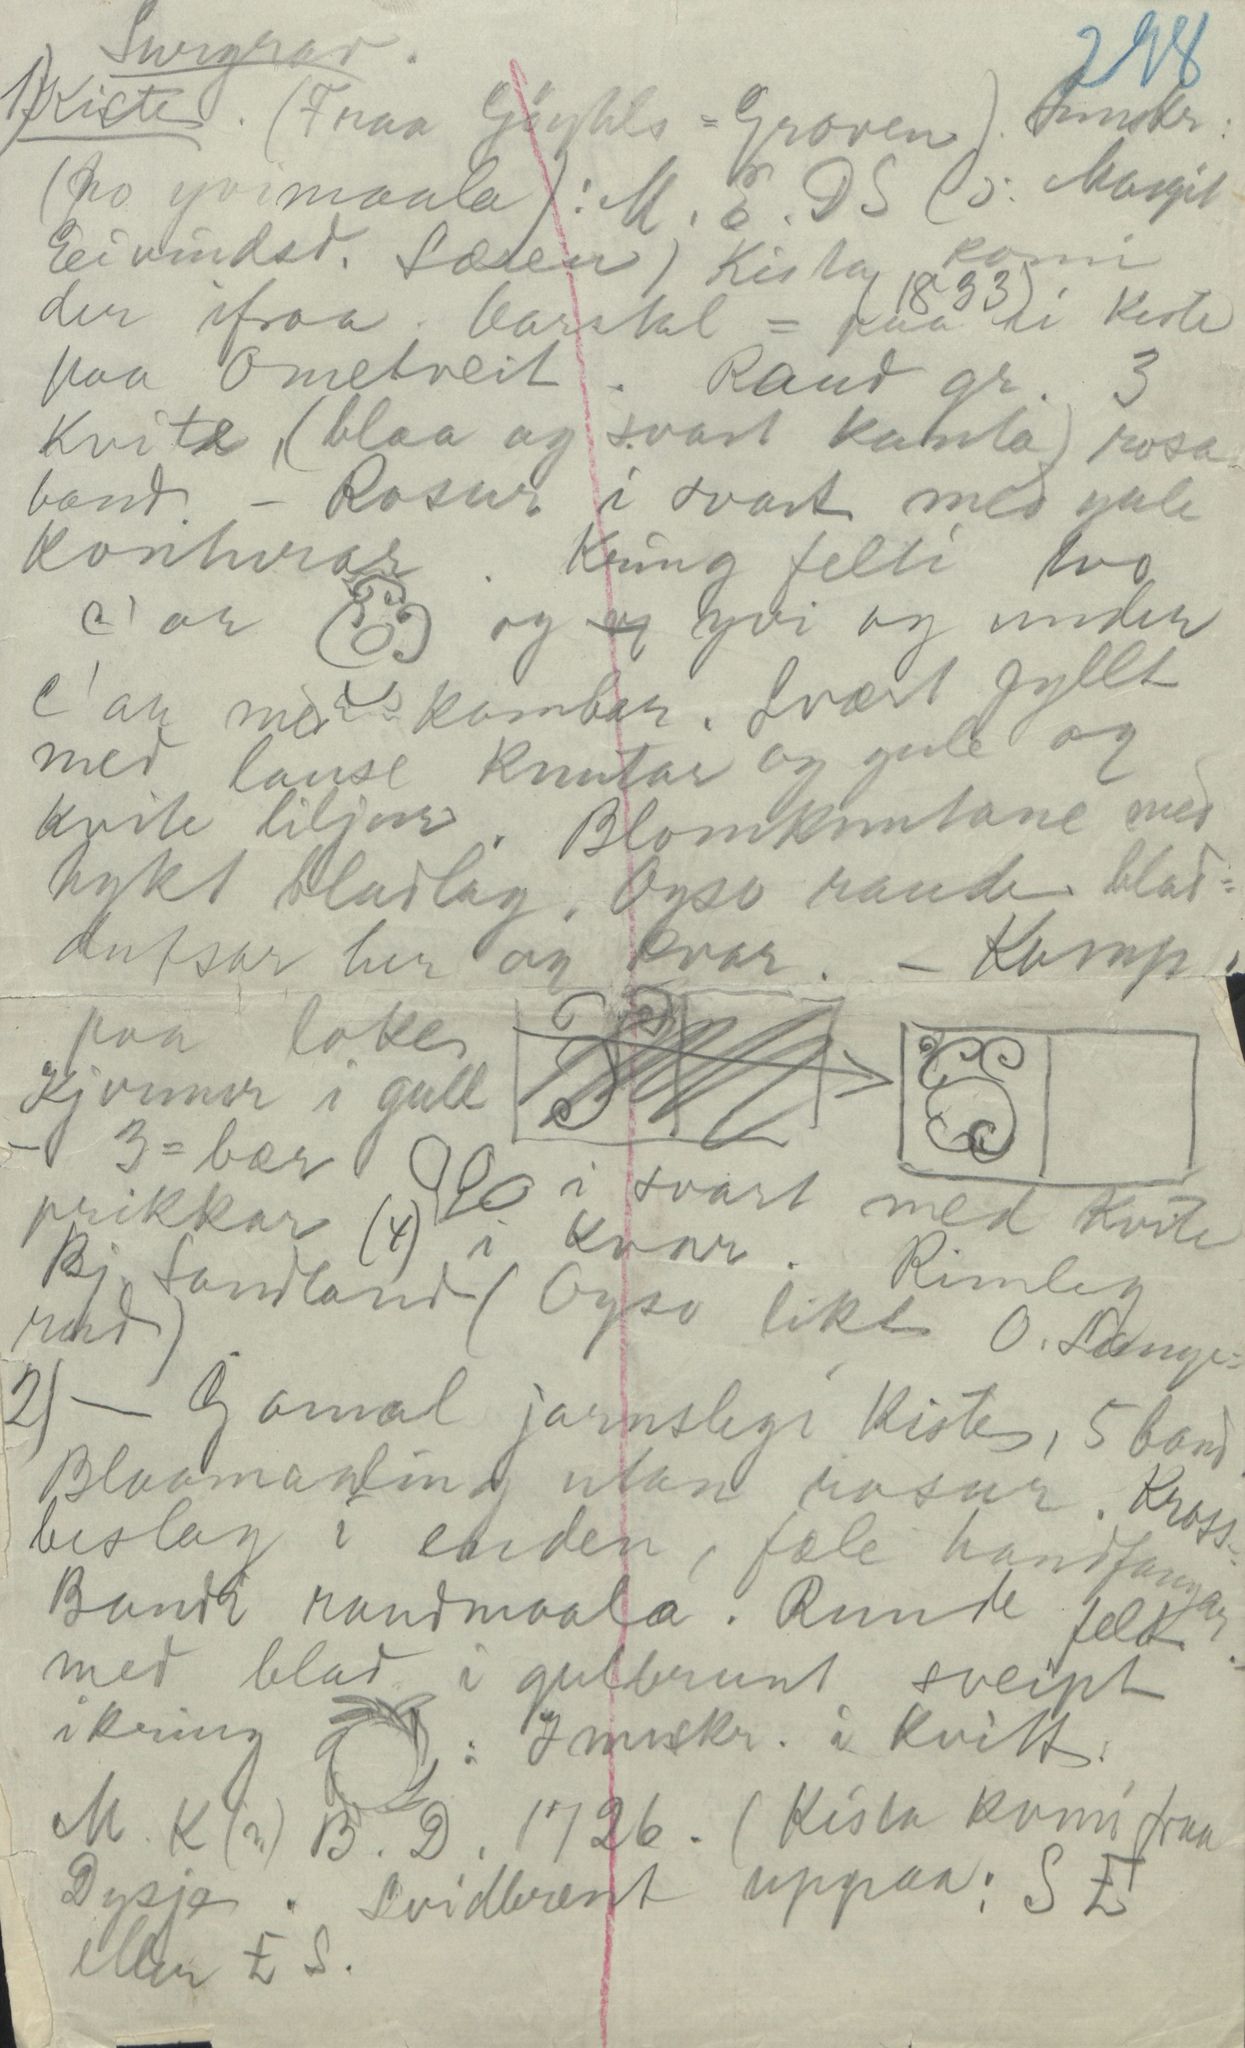 Surgrav.
248
1) Kiste. (Fraa Gøyhls=Graven). Innskr:
(no yvimaala): M. E. DS (o: Margit
Eivindsd. Særen) Kista komi
der ifraa. Aarstal = (1833) i kiste
paa Ometveit. Raud gr. 3
kvite, (blaa og svart kanta) rosa
band. - Rosur i svart med gule
konturar. Kring felti tvo
c'ar og yvi og under
c'ar med kambar. Svært fyllt
med lause knutar og gule og
kvite liljur. Blomknutane med
tykt bladlag. Ogso raude blad=
dutsar her og kvar. - Komp.
paa loket
Kjvumur i gull
- 3=bær i svart med kvite
prikkar (4) i kvar. Rimleg
Bj. Sandland (Ogso likt O. Lange=
rud)
2) - Gamal jarnslegi kiste, 5 band.
Blaamaaling utan rosur. Kross=
beslag i enden, fæle handfangar.
Bandi raudmaala. Runde felt
med blad i gulbrunt sveipt
ikring : Innskr. i kvitt:
M. K(n) B. D. 1726. (Kista komi fraa
Dysja. Svidbrent uppaa: S E
eller E S.